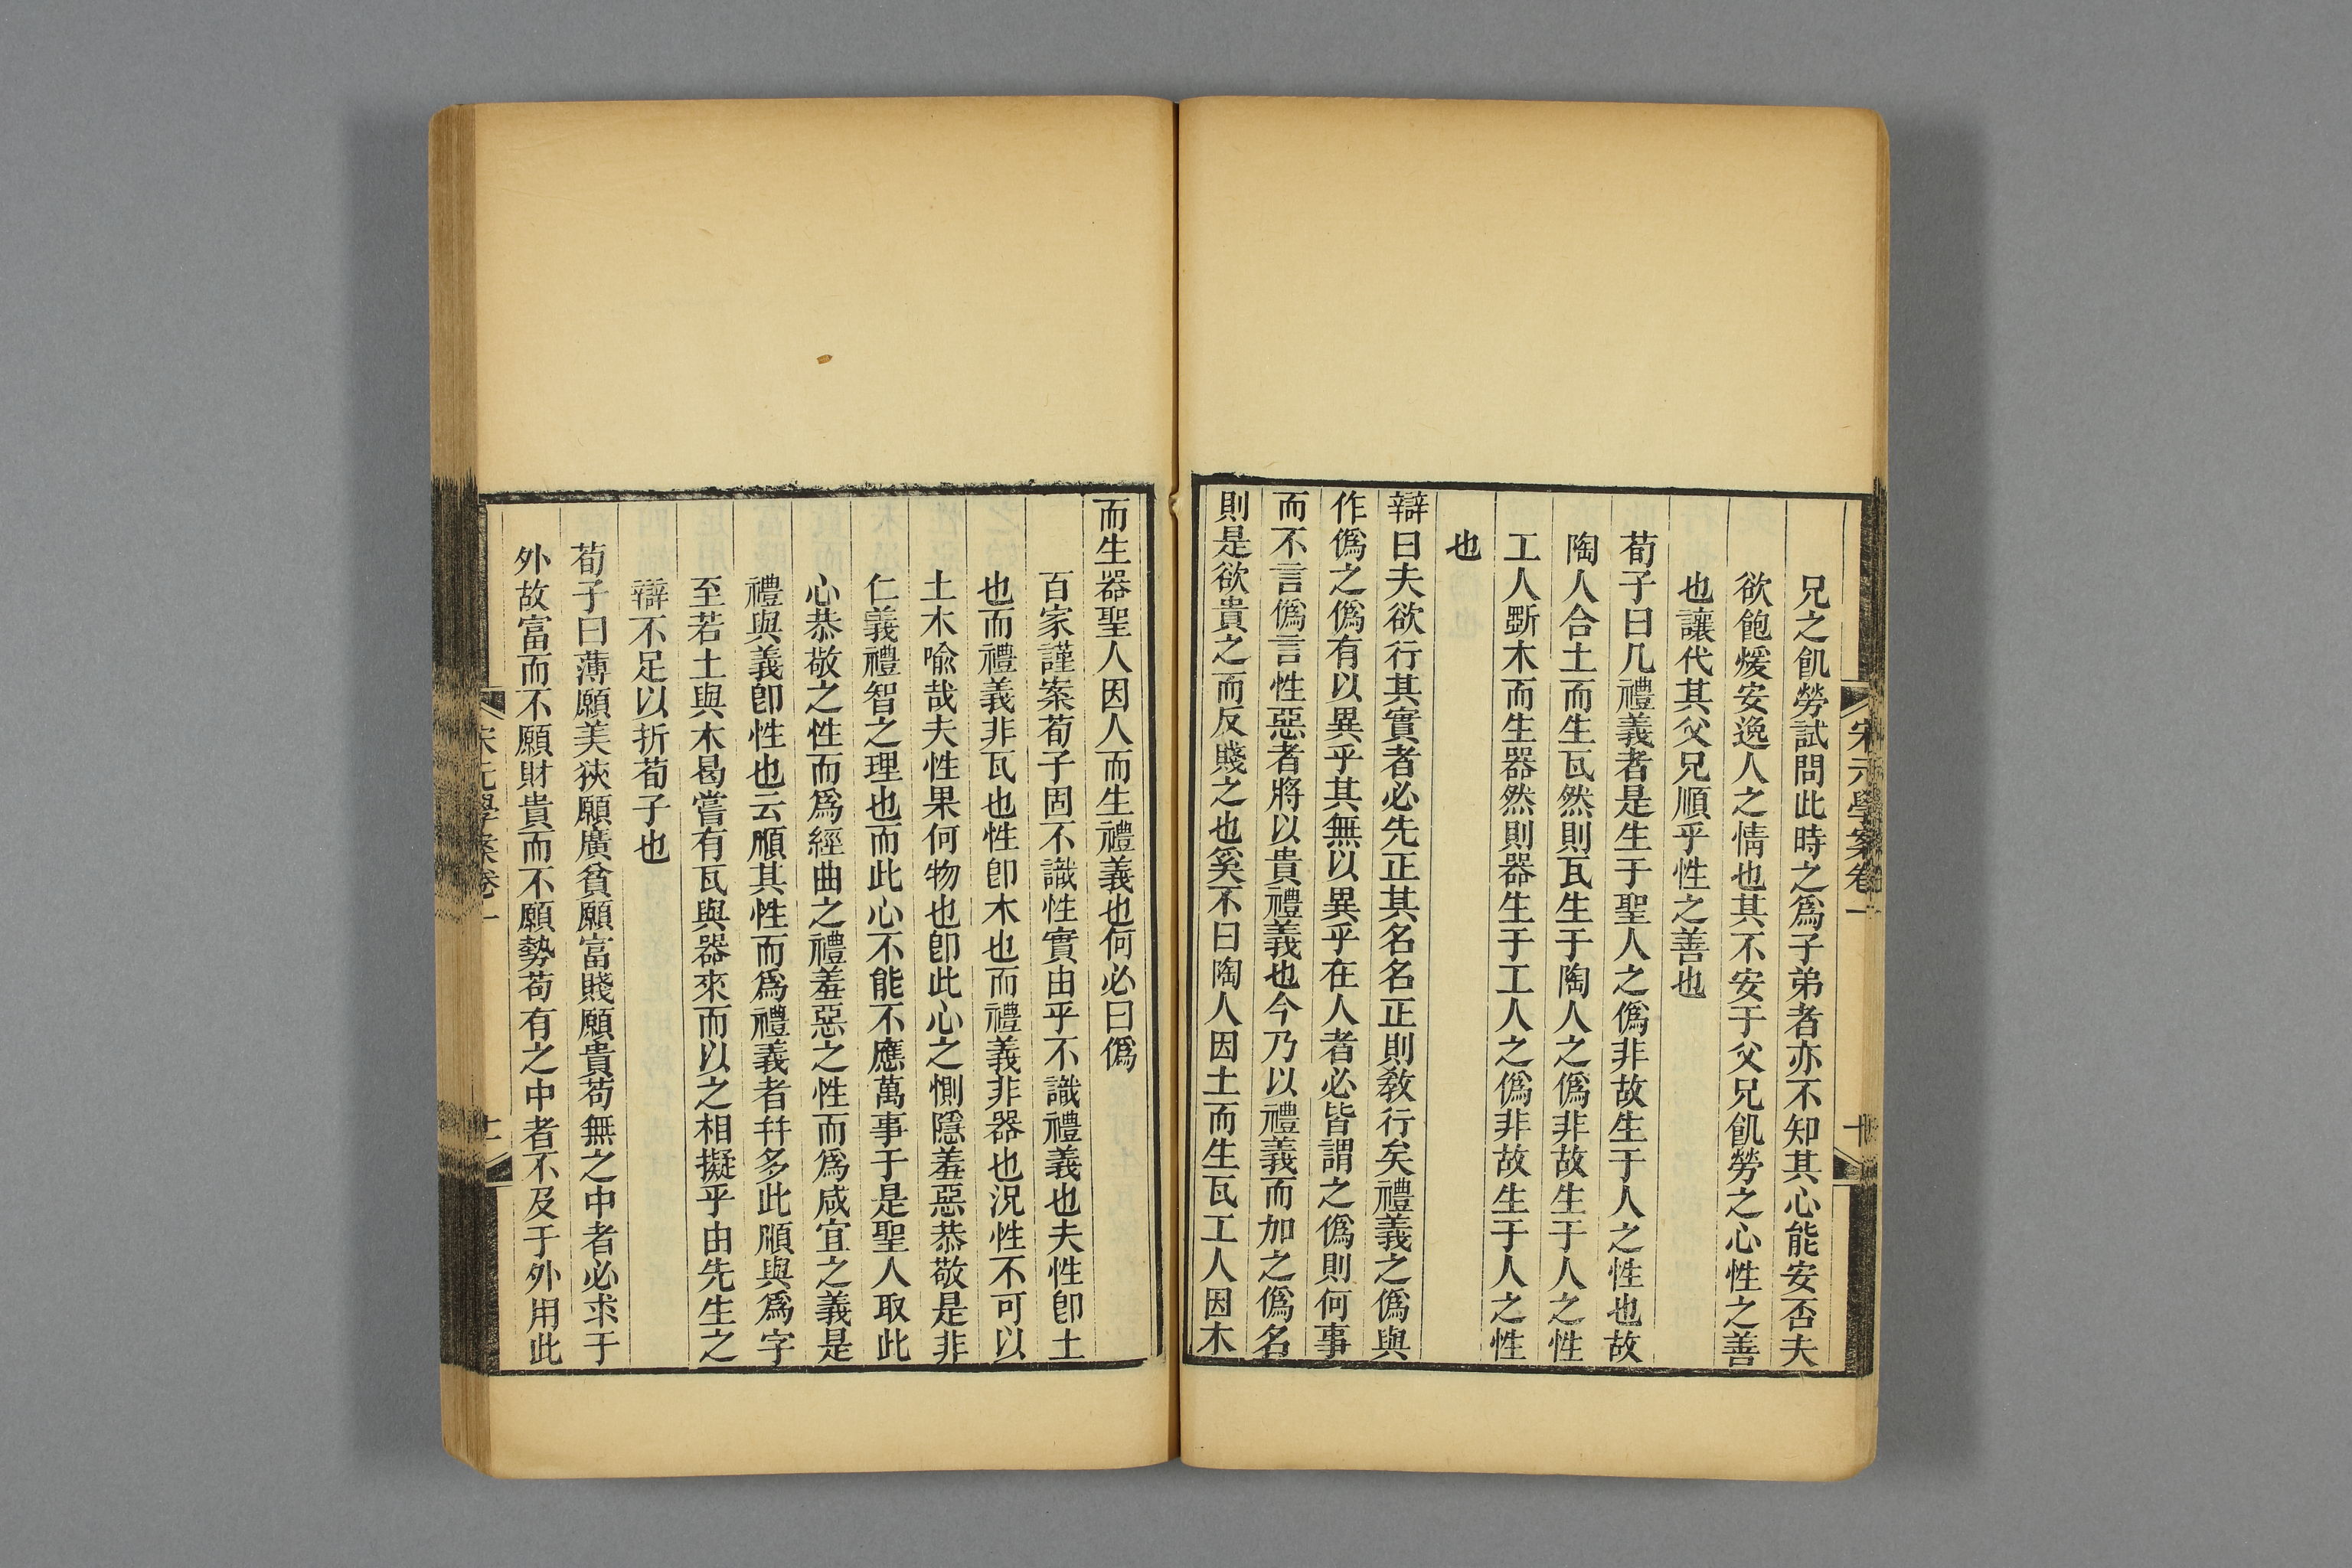 宋元學案卷一
十
兄之飢勞試問此時之爲子弟者亦不知其心能安否夫
欲飽煖安逸人之情也其不安于父兄飢勞之心性之善
也讓代其父兄順乎性之善也
荀子曰凡禮義者是生于聖人之僞非故生于人之性也故
陶人合土而生瓦然則瓦生于陶人之僞非故生于人之性
工人斲木而生器然則器生于工人之僞非故生于人之性
也
辯曰夫欲行其實者必先正其名名正則敎行矣禮義之僞與
作僞之僞有以異乎其無以異乎在人者必皆謂之僞則何事
而不言僞言性惡者將以貴禮義也今乃以禮義而加之僞名
則是欲貴之而反賤之也奚不曰陶人因土而生瓦工人因木
而生器聖人因人而生禮義也何必曰僞
百家謹案荀子固不識性實由乎不識禮義也夫性卽土
也而禮義非瓦也性卽木也而禮義非器也況性不可以
土木喻哉夫性果何物也卽此心之惻隱羞惡恭敬是非
仁義禮智之理也而此心不能不應萬事于是聖人取此
心恭敬之性而爲經曲之禮羞惡之性而爲咸宜之義是
禮與義卽性也云順其性而爲禮義者幷多此順與爲字
至若土與木曷嘗有瓦與器來而以之相擬乎由先生之
辯不足以折荀子也
荀子曰薄願美狹願廣貧願富賤願貴苟無之中者必求于
外故富而不願財貴而不願勢苟有之中者不及于外用此
宋元學案卷一